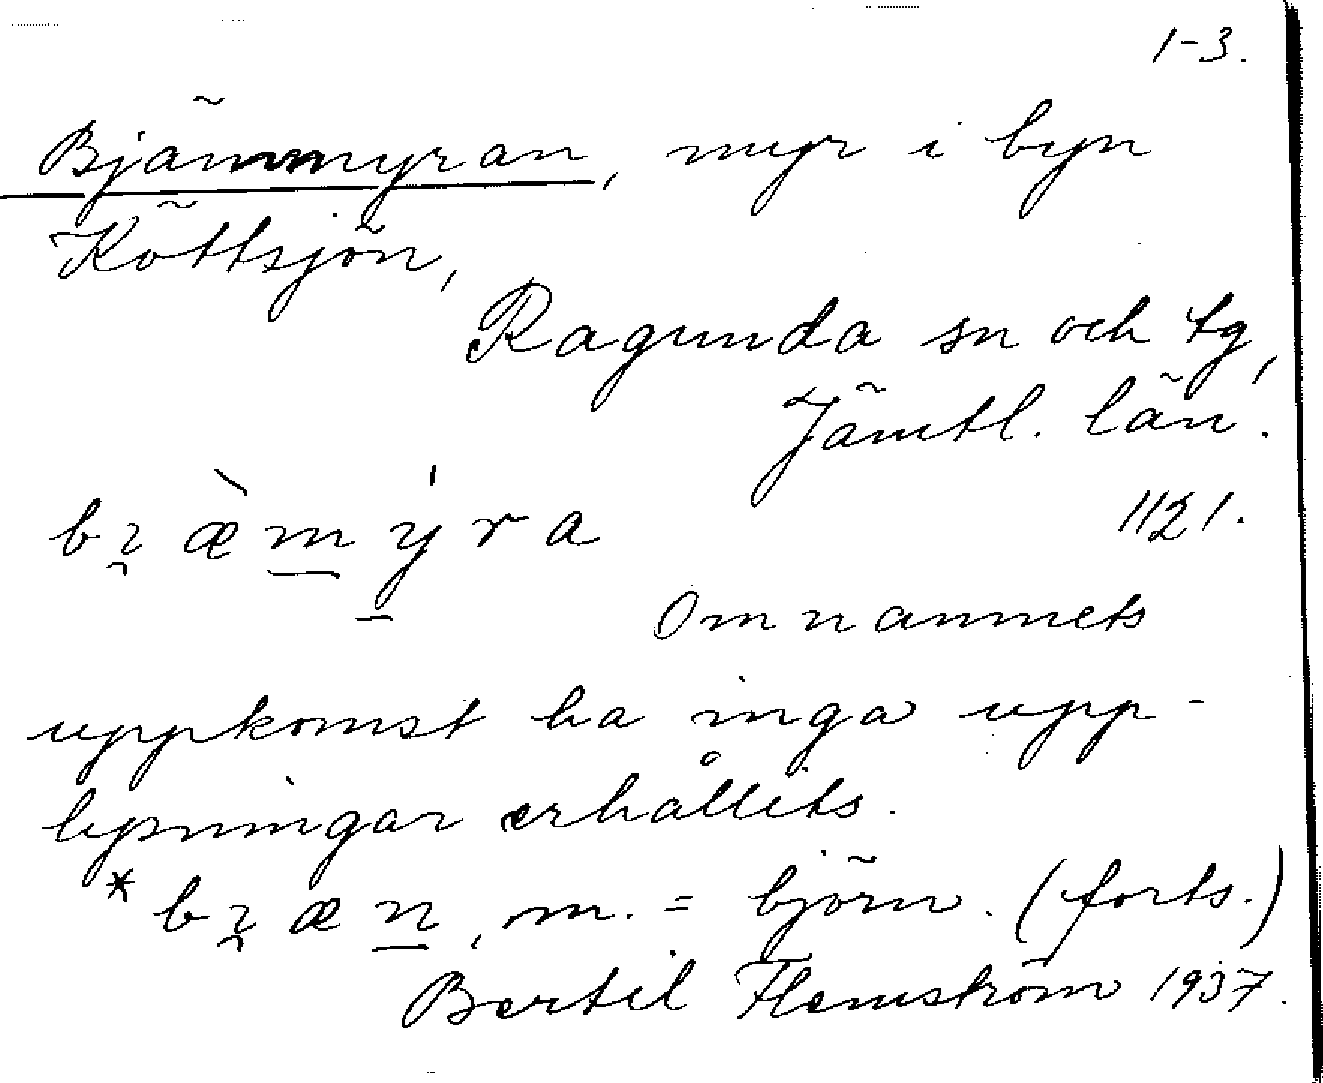 1-3.
Bjämmyran, myr i byn
Köttsjön,
Ragunda sn och tg,
Jämtl. län.
bɿ̯æ̀m̲ý̲ra 1121.
Om namnets
uppkomst ha inga upp-
lysningar erhållits.
*bɿ̯æn̲, m. = björn. (forts.)
Bertil Flemström 1937.